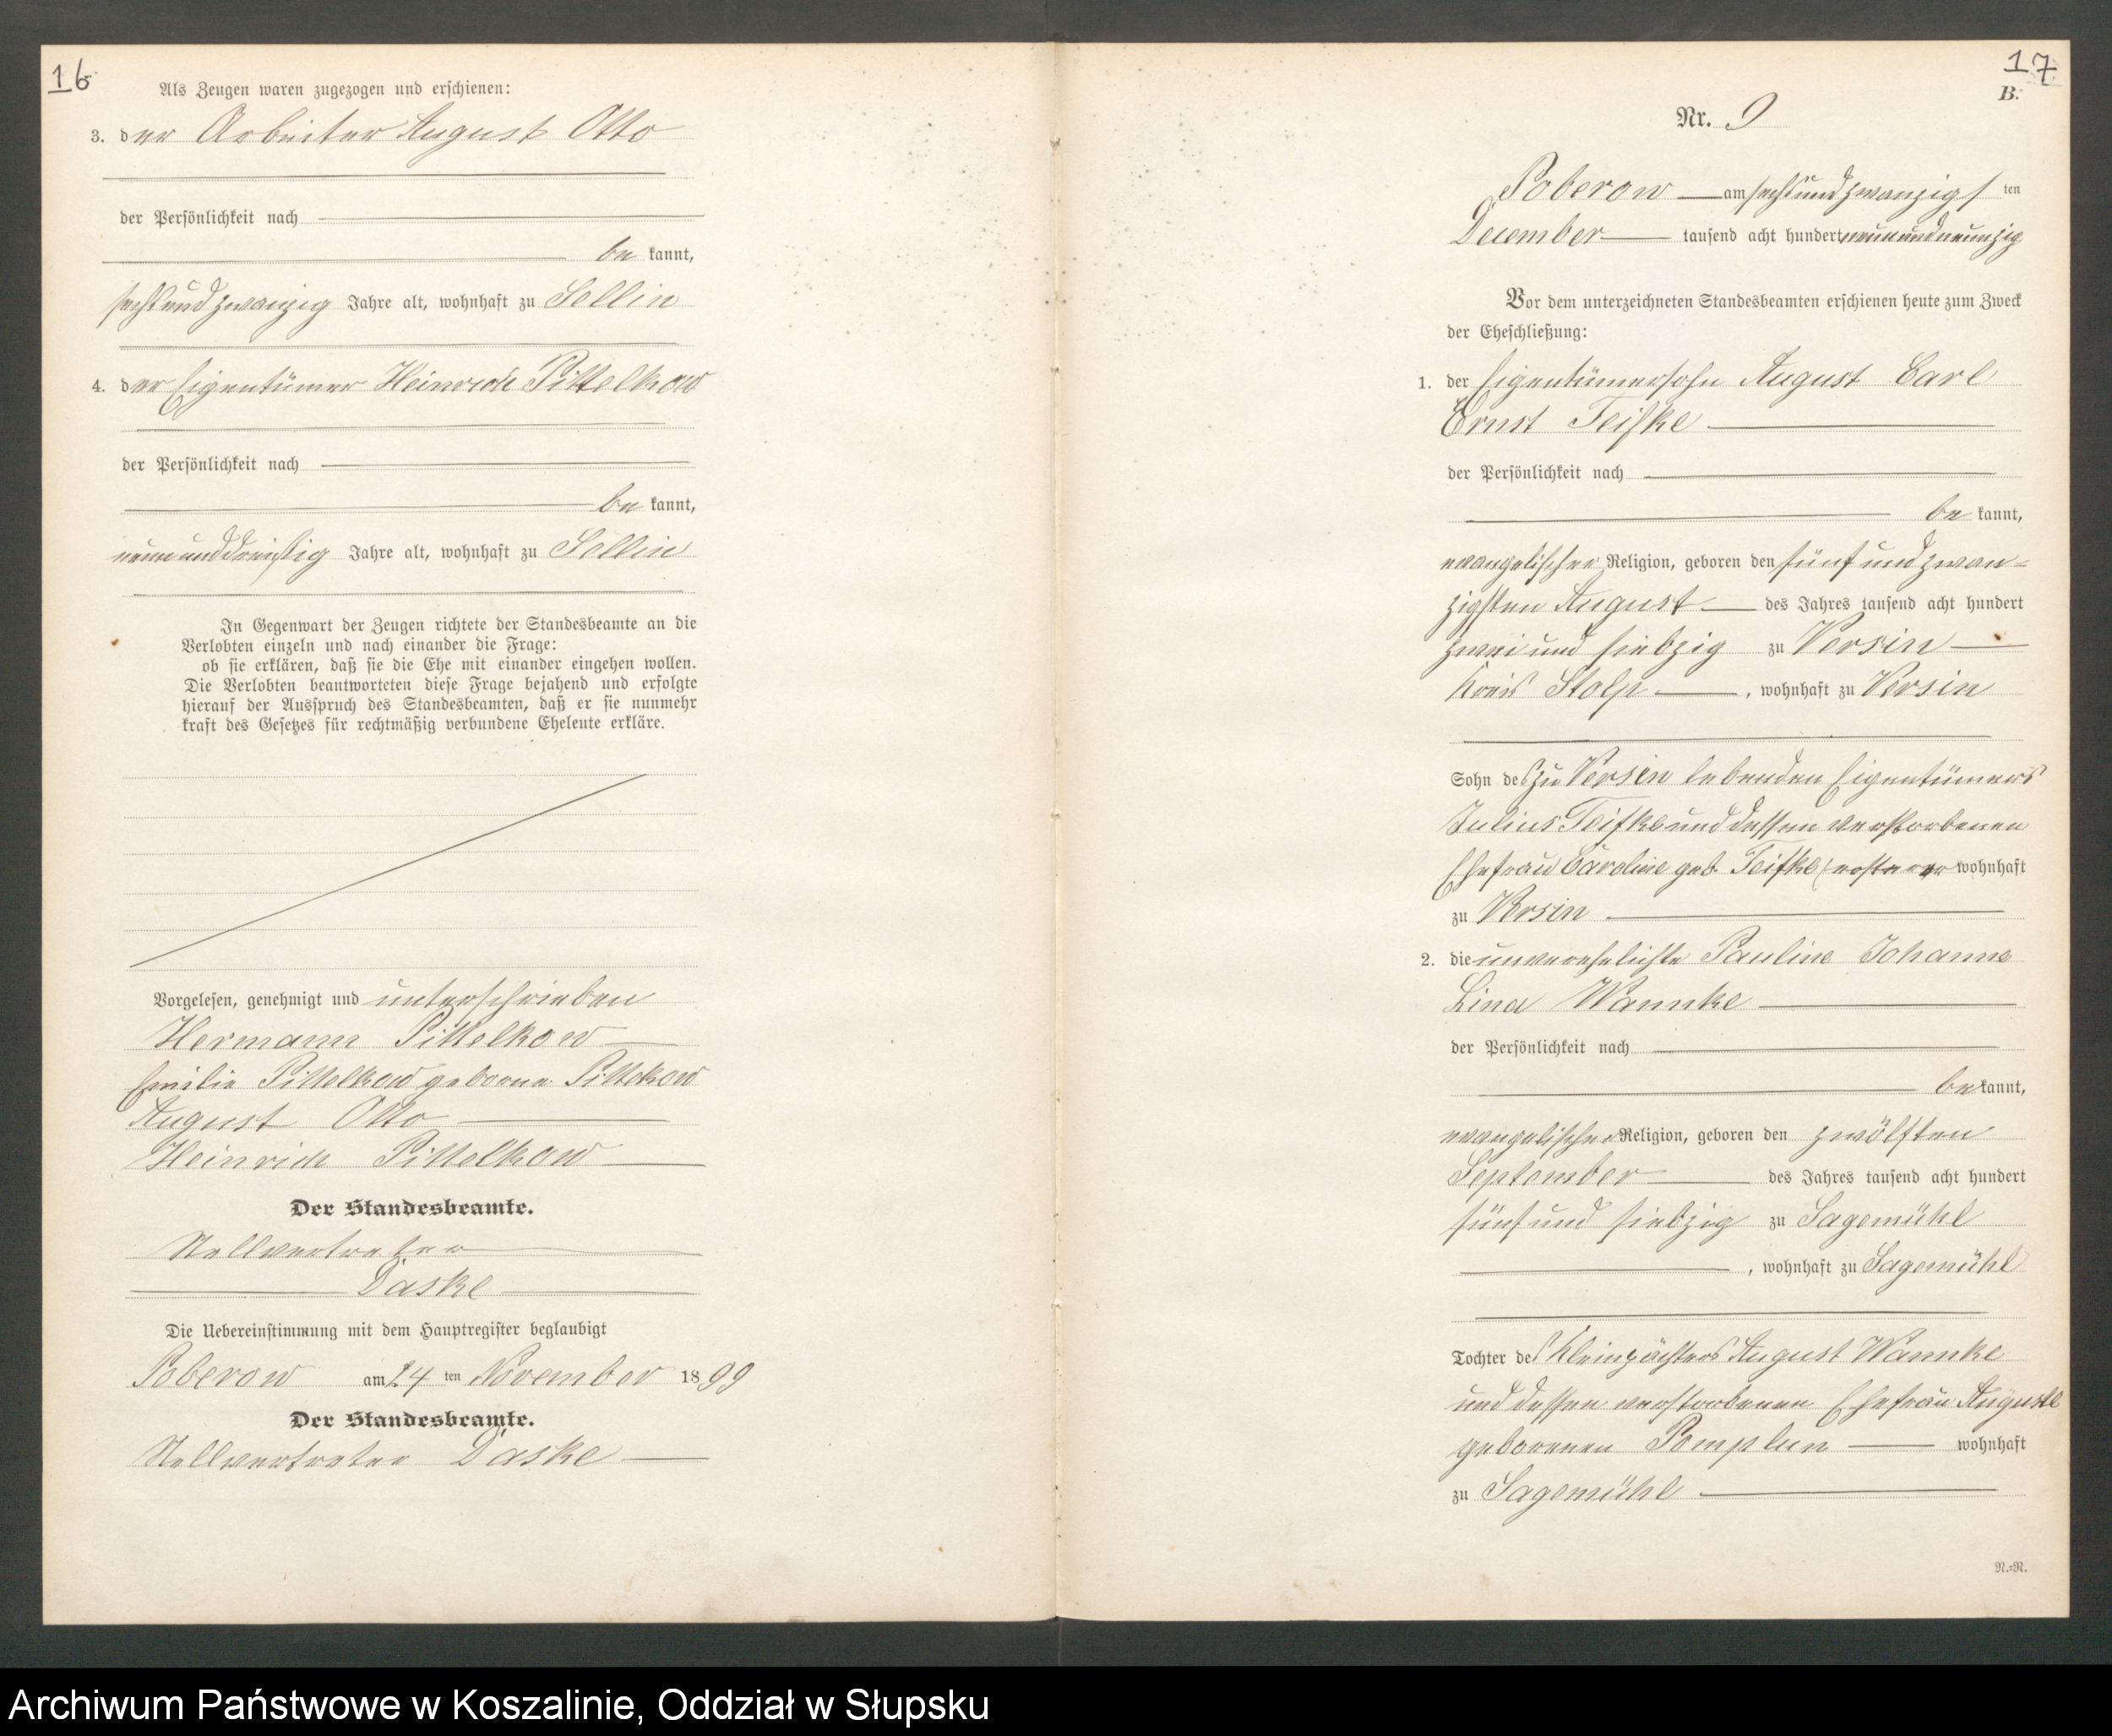 16
Als Zeugen waren zugezogen und erschienen:
3. der Arbeiter August Otto
der Persönlichkeit nach
be kannt,
sechsundzwanzig Jahre alt, wohnhaft zu Sellin
4. der Eigentümer Heinrich Pittelkow
der Persönlichkeit nach
be kannt,
neununddreißig Jahre alt, wohnhaft zu Sellin
In Gegenwart der Zeugen richtete der Standesbeamte an die
Verlobten einzeln und nach einander die Frage:
ob sie erklären, daß sie die Ehe mit einander eingehen wollen.
Die Verlobten beantworteten diese Frage bejahend und erfolgte
hierauf der Ausspruch des Standesbeamten, daß er sie nunmehr
kraft des Gesetzes für rechtmäßig verbundene Eheleute erkläre.
Vorgelesen, genehmigt und unterschrieben
Hermann Pittelkow
Emilie Pittelkow geborne Pittelkow
August Otto
Heinrich Pittelkow
Der Standesbeamte.
Stellvertreter
Daske
Die Uebereinstimmung mit dem Hauptregister beglaubigt
Poberow am 24 ten November 1899
Der Standesbeamte.
Stellvertreter Daske
17
B.
Nr. 9
Poberow am sechsundzwanzigs ten
December tausend acht hundert neunundneunzig
Vor dem unterzeichneten Standesbeamten erschienen heute zum Zweck
der Eheschließung:
1. der Eigentümersohn August Carl
Ernst Teifke
der Persönlichkeit nach
be kannt,
evangelischer Religion, geboren den fünfundzwan-
zigsten August des Jahres tausend acht hundert
zweiundsiebzig zu Versin
Kreis Stolp, wohnhaft zu Versin
Sohn des zu Versin lebenden Eigentümers
Julius Teifke und dessen verstorbenen
Ehefrau Caroline geb. Teifke, ersterer wohnhaft
zu Versin
2. die unverehelichte Pauline Johanne
Lina Wannke
der Persönlichkeit nach
be kannt,
evangelischer Religion, geboren den zwölften
September des Jahres tausend acht hundert
fünfundsiebzig zu Sagemühl
, wohnhaft zu Sagemühl
Tochter des Kleinpächters August Wannke
und dessen verstorbenen Ehefrau Auguste
geborenen Pomplun wohnhaft
zu Sagemühl
N.=N.
Archiwum Państwowe w Koszalinie, Oddział w Słupsku